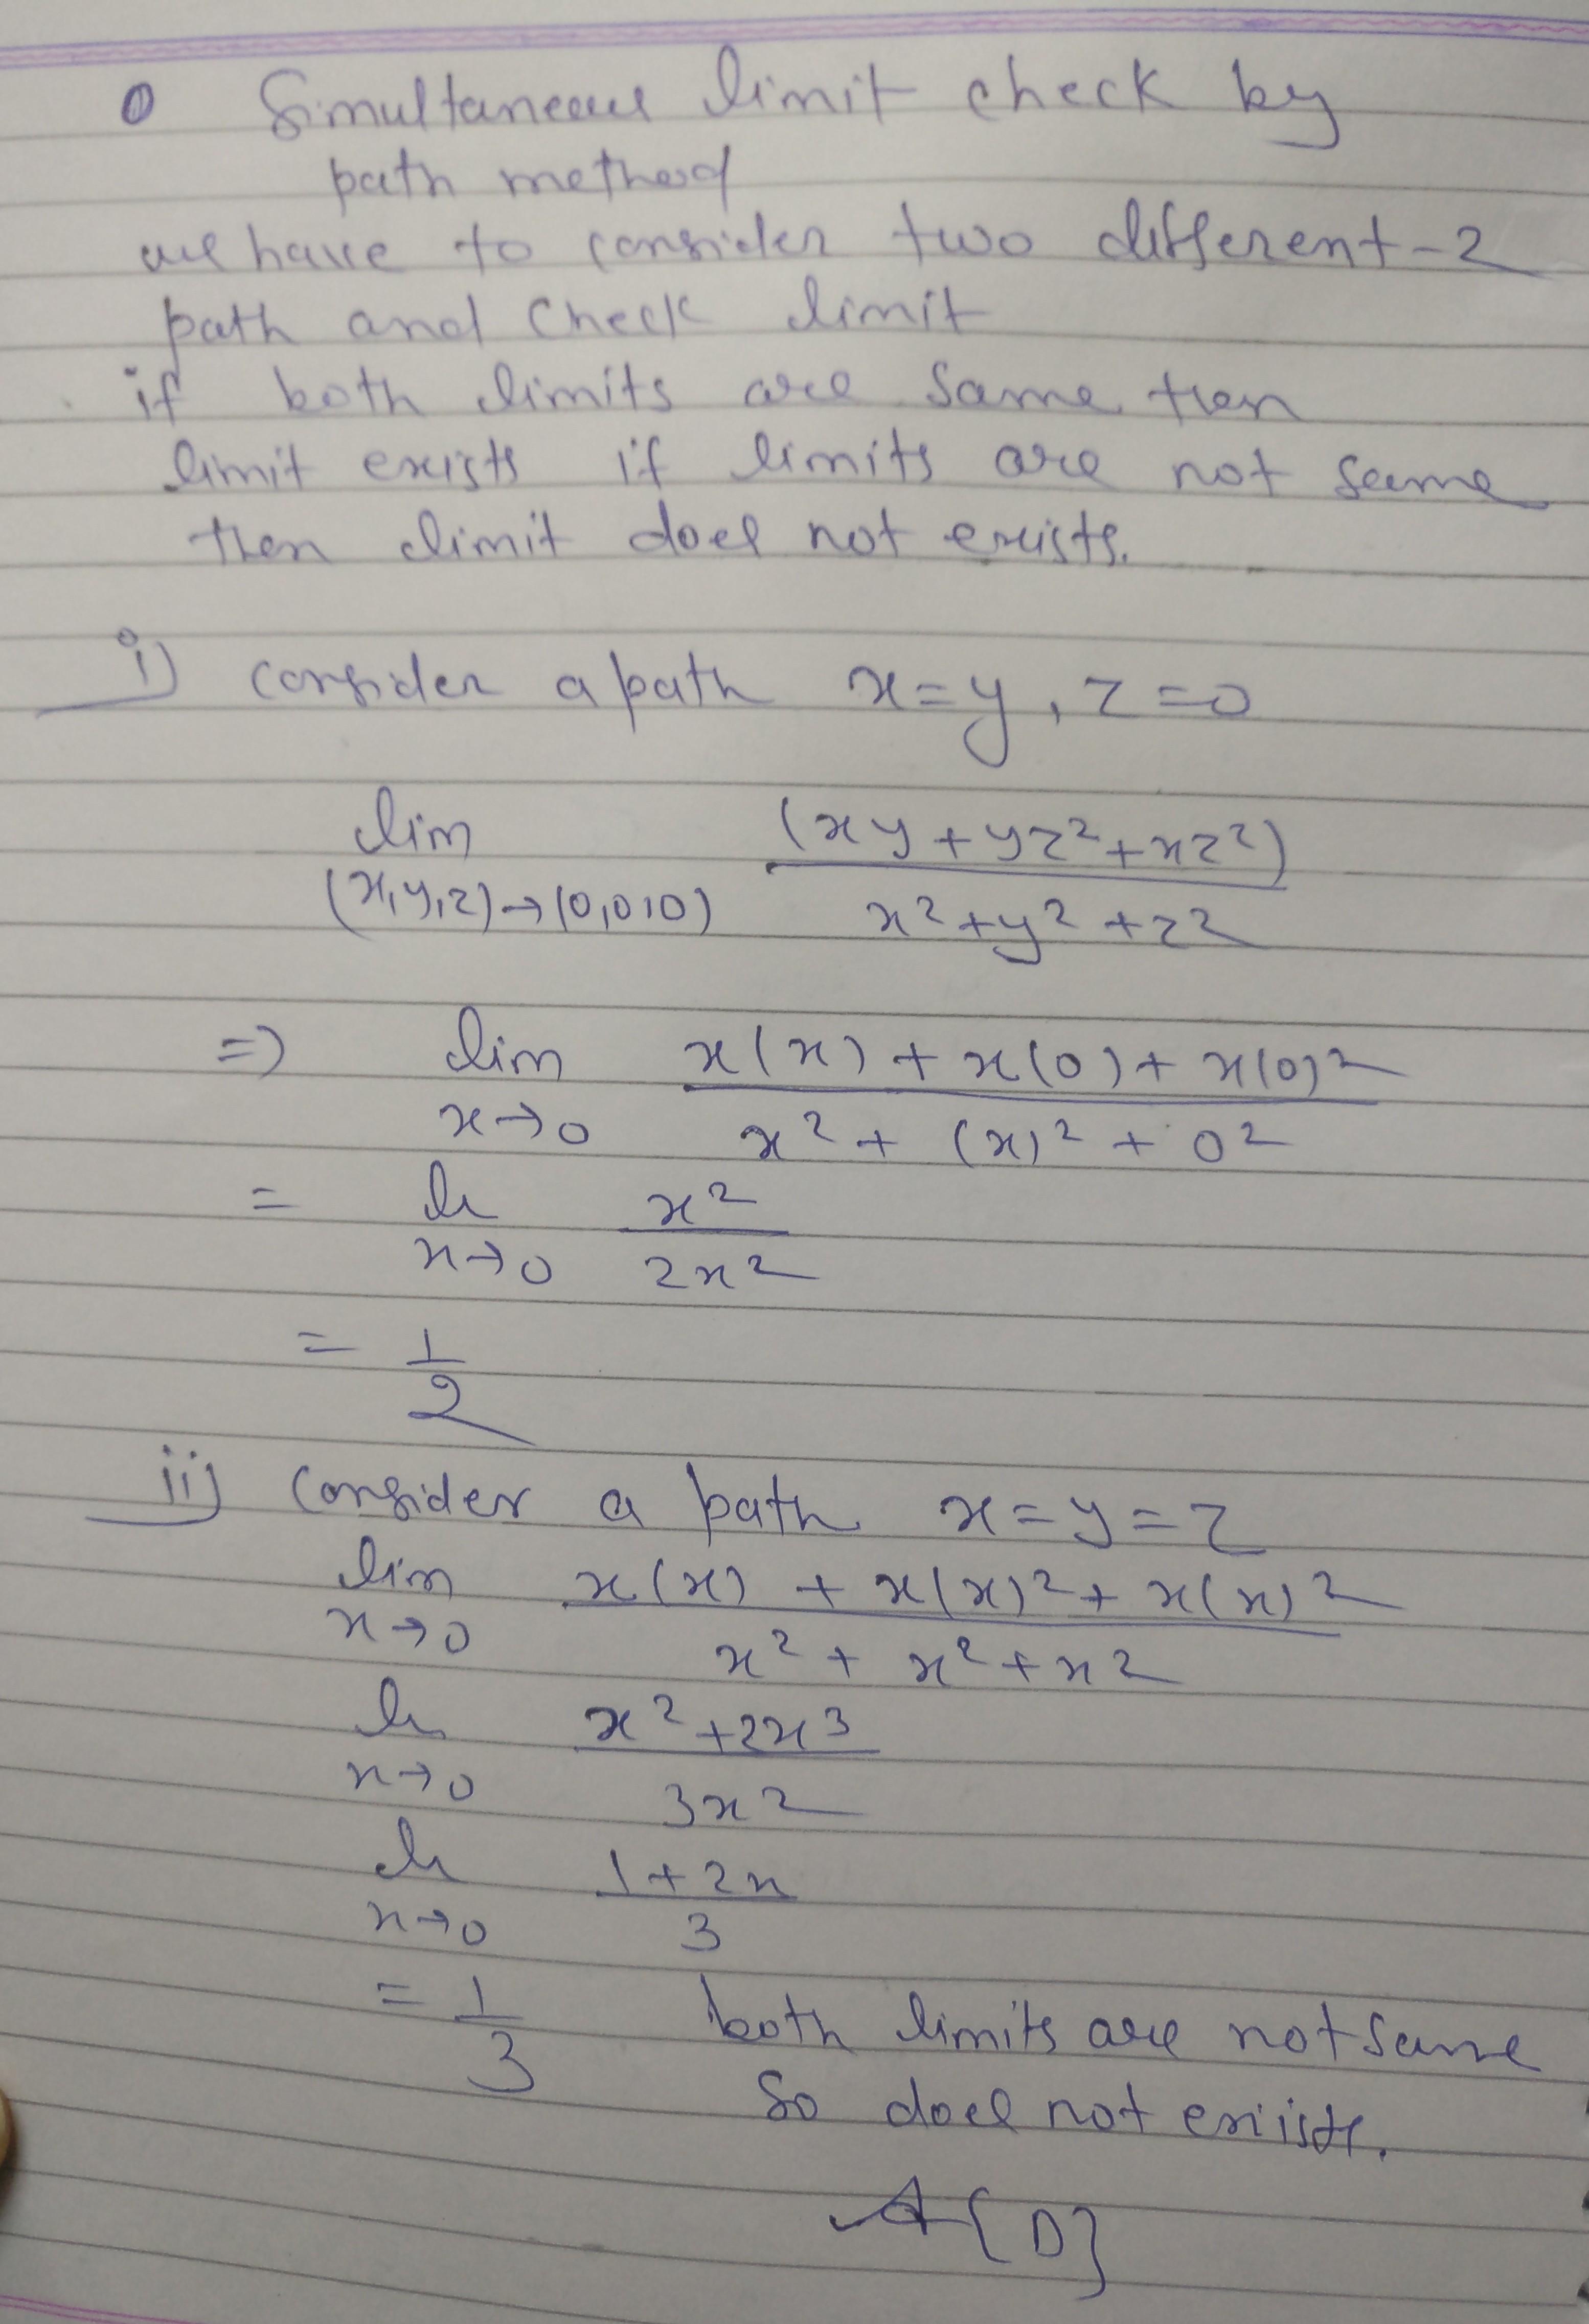 Simultaneous limit check by
path method
we have to consider two different-2
path and check limit
if both limits are same then
limit exists if limits are not same
then limit does not exists.
i) consider a path x=y, z=0
lim (xy+yz²+xz²)
(x,y,z)→(0,0,0) x²+y²+z²
=) lim x(x)+x(0)+x(0)²
x→0 x²+(x)²+0²
= li x²
x→0 2x²
= 1
2
ii) consider a path x=y=z
lim x(x)+x(x)²+x(x)²
x→0 x²+x²+x²
li x²+2x³
x→0 3x²
li 1+2x
x→0 3
= 1 both limits are not same
3 so does not exists.
A{D}